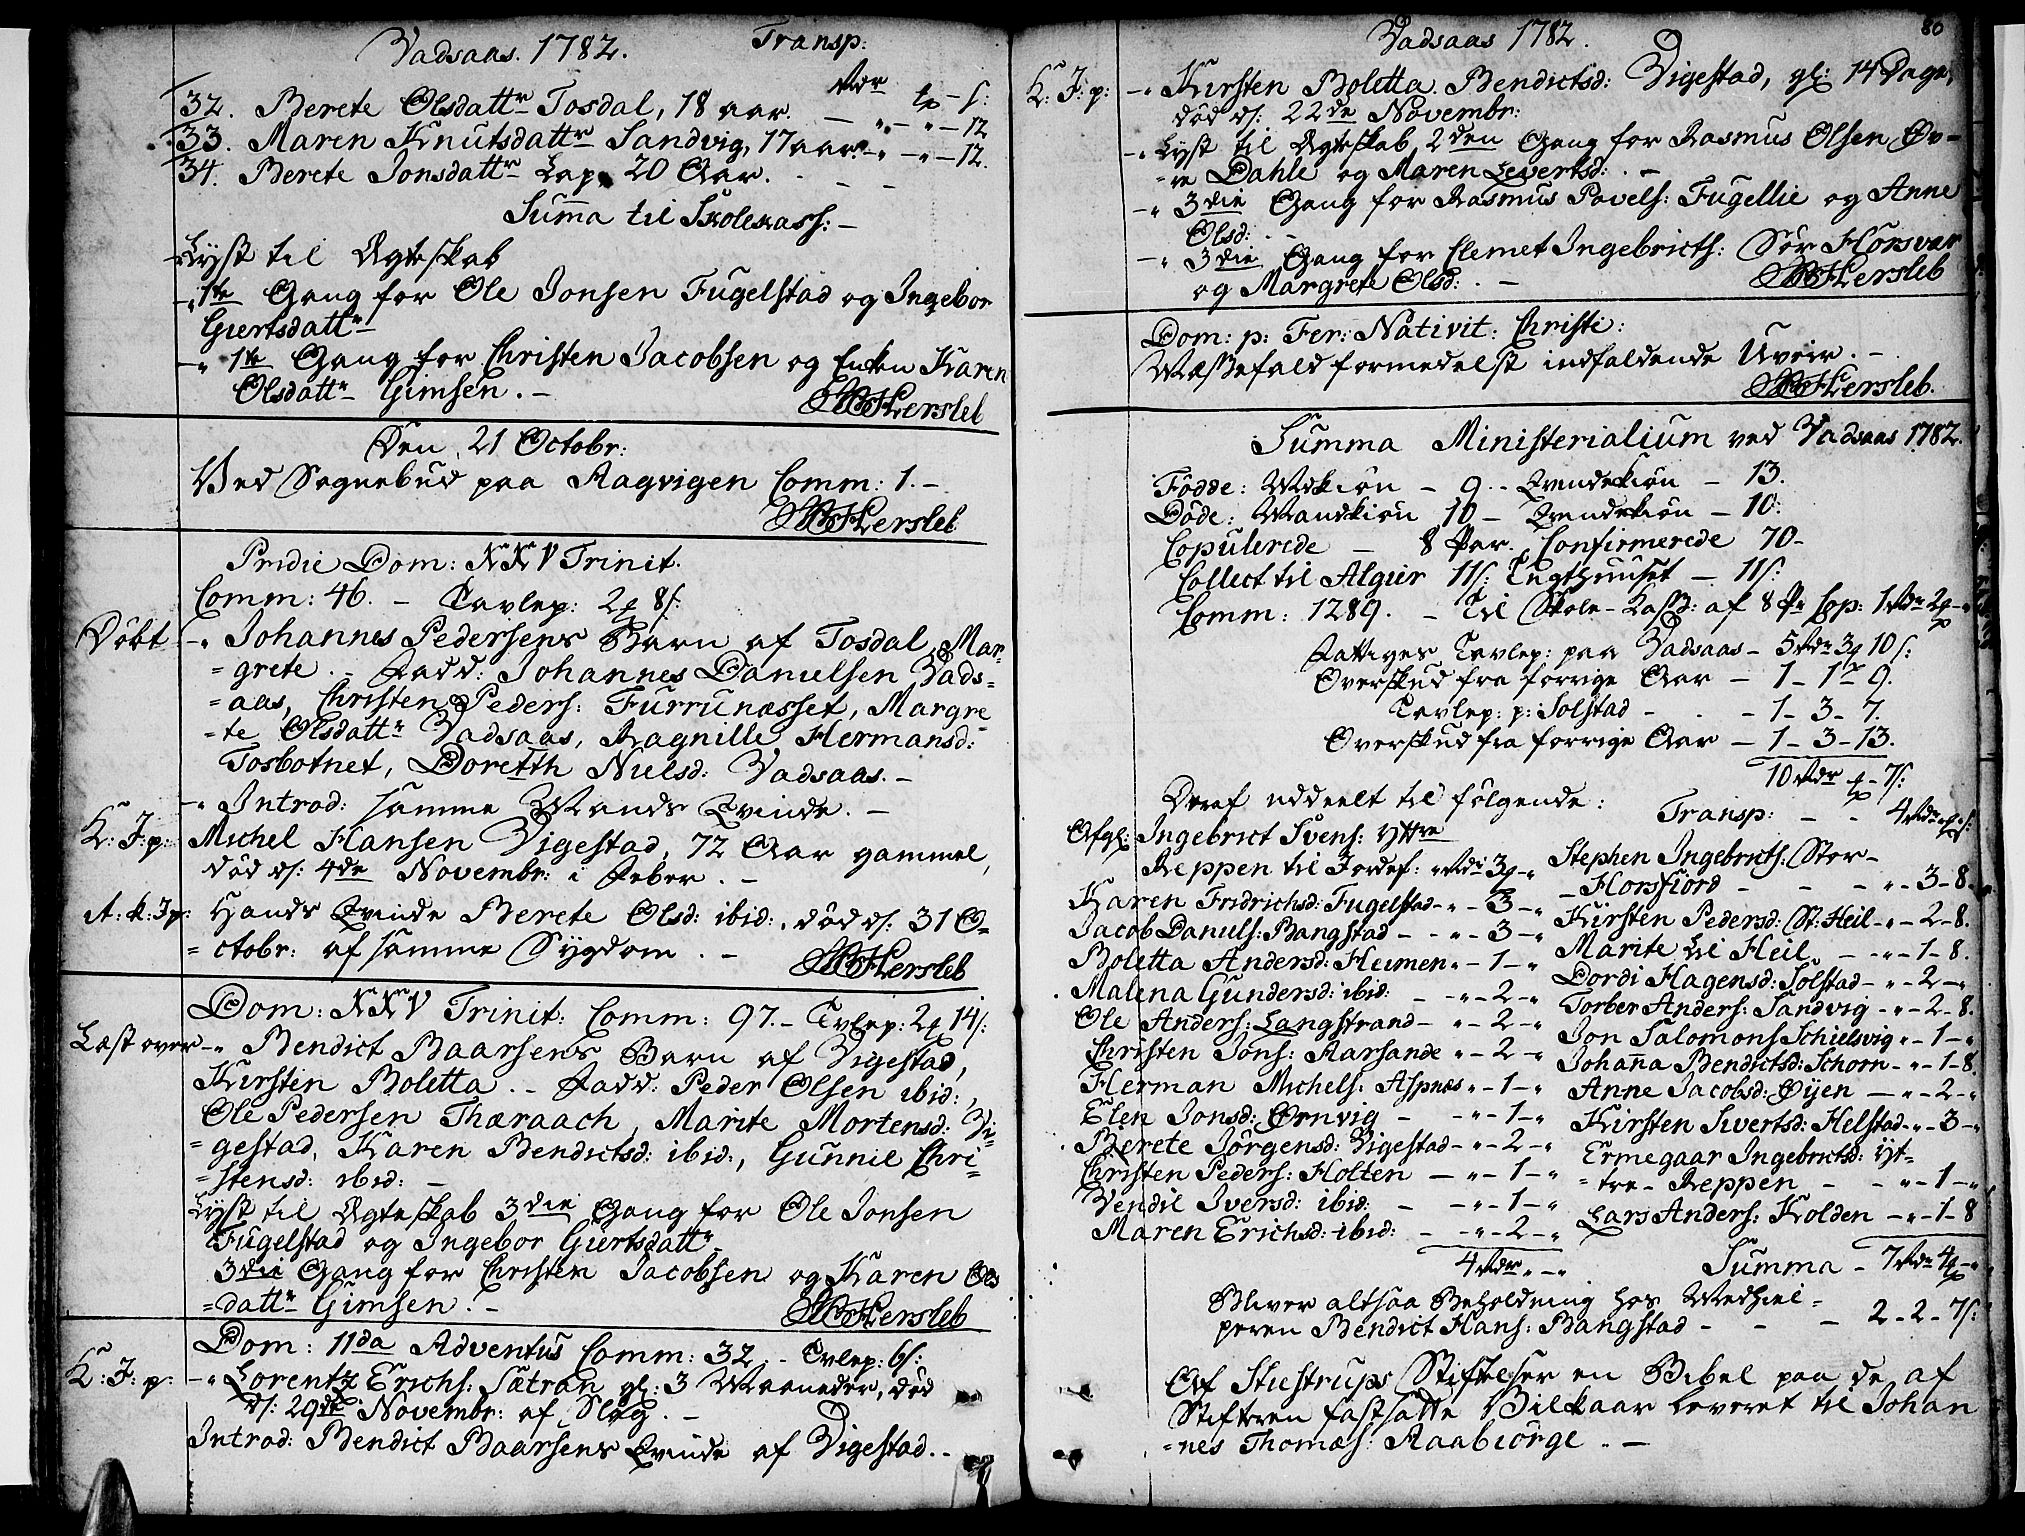 Vadsaas. 1782. Transp:
Rdr ʒ - s:
32. Berete Olsdattr Tosdal, 18 aar. - " - " - 12
33. Maren Knutsdattr Sandvig, 17 aar. - " - " - 12.
34. Berete Jonsdattr Lap, 20 Aar. - - -
Summa til Skolekass: -
Lyst til Ægteskab
-" 1te Gang for Ole Jonsen Fugelstad og Ingebor
Giertsdattr
-" 1te Gang for Christen Jacobsen og Enken Karen
Olsdattr Gimsen. -
Hersleb
Den 21 Octobr:
Ved Sognebud paa Aagvigen Comm: 1. -
Hersleb
Pridie Dom: XXV Trinit.
Comm: 46. - Tavlep: 2ʒ 8s:
Döbt -" Johannes Pedersens Barn af Tosdal, Mar-
=grete. - Fadd: Johannes Danielsen Vads=
=aas, Christen Peders: Furrunæsset, Margre
=te Olsdattr Vadsaas, Ragnille Hermansd:
Tosbotnet, Doretth Nielsd: Vadsaas. -
-" Introd: samme Mands Qvinde. -
K: J: p: Michel Hansen Vigestad, 72 Aar gammel,
död d: 4de Novembr: i Feber. -
A: k: J p: Hands Qvinde Berete Olsd: ibid:, död d: 31 O=
=ctobr: af samme Sygdom. -
Hersleb
Dom: XXV Trinit: Comm: 97. - Tvlep: 2ʒ 14s:
Læst over -" Bendict Baarsens Barn af Vigestad,
Kirsten Boletta. - Fadd: Peder Olsen ibid:,
Ole Pedersen Thæraach, Marite Mortensd: Vi=
=gestad, Karen Bendictsd: ibid:, Gunnil Chri=
=stensd: ibid: -
Lyst til Ægteskab 3die Gang for Ole Jonsen
Fugelstad og Ingebor Giertsdattr
3die Gang for Christen Jacobsen og Karen Ols
=dattr Gimsen. -
Hersleb
Dom: 11da Adventus Comm: 32. - Tvlep: 6s:
K: J: p: -" Lorentz Erichs: Sætran gl: 3 Maaneder, död
d: 29de Novembr: af Slag. -
Introd: Bendict Baarsens Qvinde af Vigestad. -
Vadsaas 1782.
80
K: J: p: -" Kirsten Boletta Bendictsd: Vigestad, gl: 14 Dage,
död d: 22de Novembr:
-" Lyst til Ægteskab 2den Gang for Rasmus Olsen Øv=
=re Dahle og Maren Levertsd: . -
-" 3die Gang for Rasmus Povels: Fugellie og Anne
Olsd: . -
-" 3die Gang for Clemet Ingebricts: Sör Horsvær
og Margrete Olsd: . -
Hersleb
Dom: p: Fer: Nativit: Christi:
Messefald formedelst indfaldende Uveir. -
Hersleb.
Summa Ministerialium ved Vadsaas 1782.
Födde: Mdkiön - 9. - Qvindekiön - 13.
Döde: Mandkiön 10 - Qvindekiön - 10:
Copulerede - 8 Par. Confirmerede 70 -
Collect til Algier 11s: Tugthuuset - 11s:
Comm: 1289. - Til Skole-Kass: af 8 Pr Cop: 1Rdr 2ʒ - "
Fattiges Tavlep: paa Vadsaas - 5Rdr 3ʒ 10s:
Overskud fra forrige Aar - 1 - 1 - 9.
Tavlep: p: Solstad - - - 1 - 3 - 7.
Overskud fra forrige Aar - 1 - 3 - 13.
10 Rdr ʒ - 7s:
Deraf uddeelt til fölgende:
Afgl: Ingebrict Svens: Yttre
Reppen til Jordef: " Rdr 3ʒ - "
Karen Fridrichsd: Fugelstad - " - 3 - "
Jacob Daniels: Bangstad - - " - 3 - "
Boletta Andersd: Heimen " - 1 - "
Malena Gundersd: ibid: - - " - 2 - "
Ole Anders: Langstrand - " - 2 - "
Christen Jons: Aarsande " - 2 - "
Herman Michels: Aspnæs " - 1 - "
Elen Jonsd: Ørnvig - - " - 1 - "
Berete Jörgensd: Vigestad - " - 2 - "
Christen Peders: Holten - " - 1 - "
Vendil Iversd: ibid: - - " - 1 - "
Maren Erichsd: ibid: - - " - 2 - "
4 Rdr " - "
Transp: - - 4 Rdr " ʒ " s:
Stephen Ingebricts: Stor-
- Horsfiord - - - " - 3 - 8.
Kirsten Pedersd: St: Heil - " - 2 - 8.
Marite Lil Heil - " - 1 - 8.
Dordi Hagensd: Solstad - " - 2 - "
Torber Anders: Sandvig - " - 2 - 8.
Jon Salomons Schielsvig " - 1 - "
Johanna Bendictsd: Schorn - " - 1 - 8.
Anne Jacobsd: Øyen - " - 2 - "
Kirsten Sivertsd: Helstad - " - 3 - "
Ermegaar Ingebrictsd: Yt=
=tre - Reppen - - " - 1 - "
Lars Anders: Kolden - " - 1 - 8
Summa - 7 Rdr 4ʒ - "
Bliver altsaa Beholdning hos Medhiel=
peren Bendict Hans: Bangstad - - - 2 - 2 - 7s:
Af Stistrups Stiftelser en Bibel paa de af
Stifteren fastsatte Vilkaar leveret til Johan
=nes Thomæs: Aabiörge. -